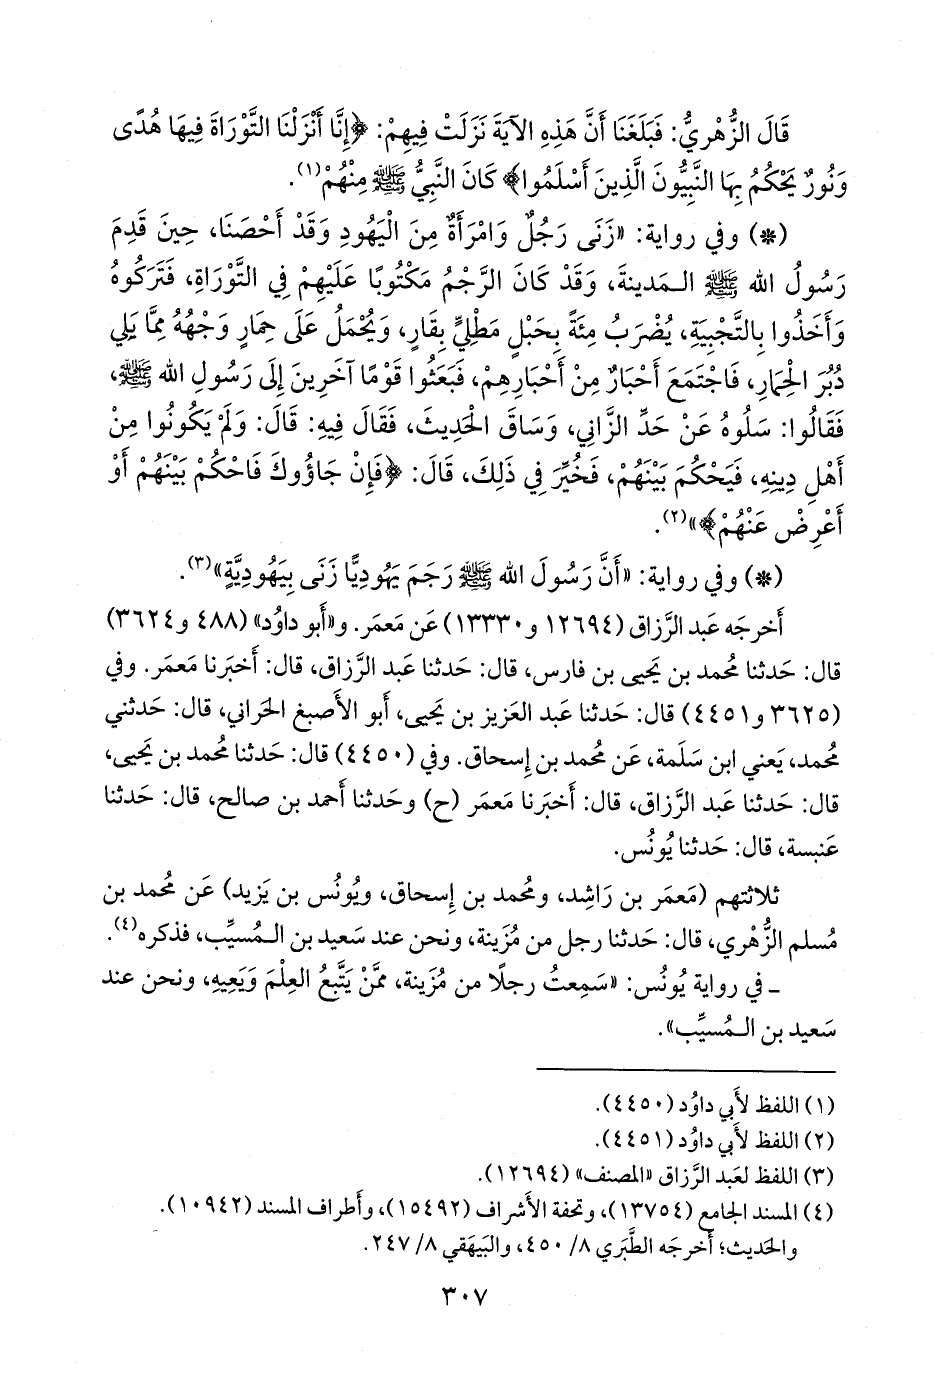 قَالَ الزُّهْرِيُّ: فَبَلَغَنَا أَنَّ هَذِهِ الآيَةَ نَزَلَتْ فِيهِمْ: ﴿إِنَّا أَنْزَلْنَا التَّوْرَاةَ فِيهَا هُدًى
وَنُورٌ يَحْكُمُ بِهَا النَّبِيُّونَ الَّذِينَ أَسْلَمُوا﴾ كَانَ النَّبِيُّ ﷺ مِنْهُمْ(١).
(*) وفي رواية: «زَنَى رَجُلٌ وَامْرَأَةٌ مِنَ الْيَهُودِ وَقَدْ أَحْصَنَا، حِينَ قَدِمَ
رَسُولُ الله ﷺ الـمَدينةَ، وَقَدْ كَانَ الرَّجْمُ مَكْتُوبًا عَلَيْهِمْ فِي التَّوْرَاةِ، فَتَرَكُوهُ
وَأَخَذُوا بِالتَّجْبِيَةِ، يُضْرَبُ مِئَةً بِحَبْلٍ مَطْلِيٍّ بِقَارٍ، وَيُحْمَلُ عَلَى حِمَارٍ وَجْهُهُ مِمَّا يَلِي
دُبُرَ الْحِمَارِ، فَاجْتَمَعَ أَحْبَارٌ مِنْ أَحْبَارِهِمْ، فَبَعَثُوا قَوْمًا آخَرِينَ إِلَى رَسُولِ الله ﷺ،
فَقَالُوا: سَلُوهُ عَنْ حَدِّ الزَّانِي، وَسَاقَ الْحَدِيثَ، فَقَالَ فِيهِ: قَالَ: وَلَمْ يَكُونُوا مِنْ
أَهْلِ دِينِهِ، فَيَحْكُمَ بَيْنَهُمْ، فَخُيِّرَ فِي ذَلِكَ، قَالَ: ﴿فَإِنْ جَاؤُوكَ فَاحْكُمْ بَيْنَهُمْ أَوْ
أَعْرِضْ عَنْهُمْ﴾»(٢).
(*) وفي رواية: «أَنَّ رَسُولَ الله ﷺ رَجَمَ يَهُودِيًّا زَنَى بِيَهُودِيَّةٍ»(٣).
أَخرجَه عَبد الرَّزاق (١٢٦٩٤ و١٣٣٣٠) عَن مَعمَر. و«أَبو داوُد» (٤٨٨ و٣٦٢٤)
قال: حَدثنا مُحمد بن يَحيى بن فارس، قال: حَدثنا عَبد الرَّزاق، قال: أَخبَرنا مَعمَر. وفي
(٣٦٢٥ و٤٤٥١) قال: حَدثنا عَبد العَزيز بن يَحيى، أَبو الأَصبغ الحَراني، قال: حَدثني
مُحمد، يَعني ابن سَلَمة، عَن مُحمد بن إِسحاق. وفي (٤٤٥٠) قال: حَدثنا مُحمد بن يَحيى،
قال: حَدثنا عَبد الرَّزاق، قال: أَخبَرنا مَعمَر (ح) وحَدثنا أَحمد بن صالح، قال: حَدثنا
عَنبسة، قال: حَدثنا يُونُس.
ثلاثتهم (مَعمَر بن رَاشِد، ومُحمد بن إِسحاق، ويُونُس بن يَزيد) عَن مُحمد بن
مُسلم الزُّهْري، قال: حَدثنا رجل من مُزَينة، ونحن عند سَعيد بن الـمُسيِّب، فذكره(٤).
ـ في رواية يُونُس: «سَمِعتُ رجلًا من مُزَينة، ممَّنْ يَتَّبعُ العِلْمَ وَيَعِيهِ، ونحن عند
سَعيد بن الـمُسيِّب».
(١) اللفظ لأَبي داوُد (٤٤٥٠).
(٢) اللفظ لأَبي داوُد (٤٤٥١).
(٣) اللفظ لعَبد الرَّزاق «المصنف» (١٢٦٩٤).
(٤) المسند الجامع (١٣٧٥٤)، وتحفة الأشراف (١٥٤٩٢)، وأَطراف المسند (١٠٩٤٢).
والحَديث؛ أَخرجَه الطَّبَري ٨/ ٤٥٠، والبَيهَقي ٨/ ٢٤٧.
٣٠٧